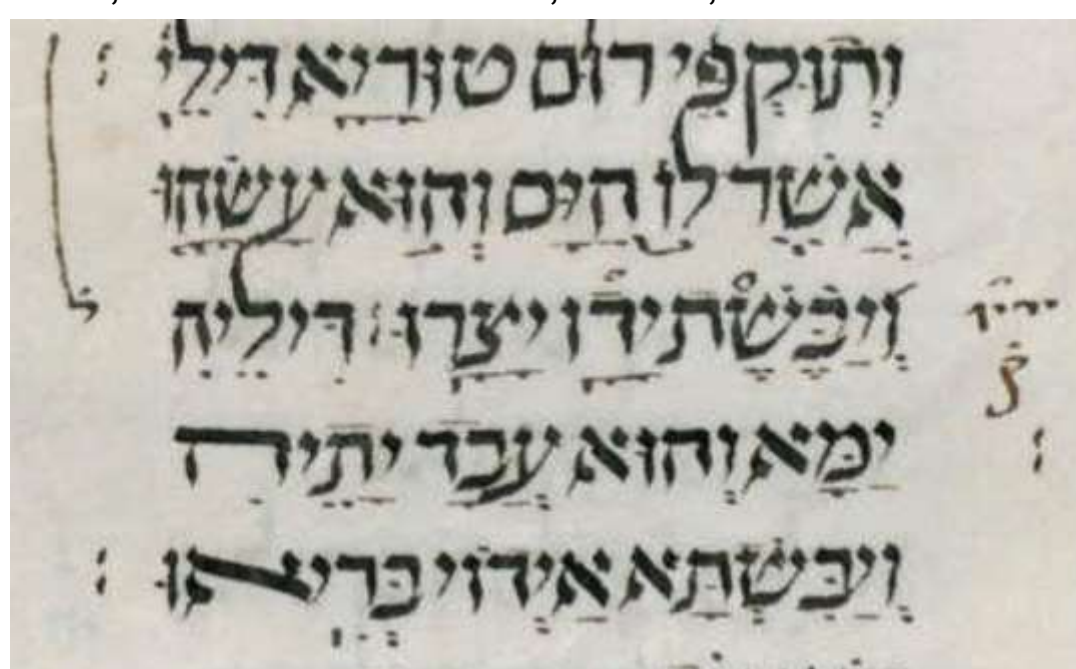 וְתוּקְפֵי רוּם טוּרַיָא דִּילֵיּ
אֲשֶׁר לוֹ הַיָּם וְהוּא עָשָׂהוּ
וְיַבֶּשֶׁת יָדָו יָצָרוּ : דִּילֵיהּ ידיו
ק
יַמָּא וְהוּא עֲבַד יָתֵיהּ
וְיַבֶּשְׁתָּא אֲיְדוֹי בְּרִיאוּ